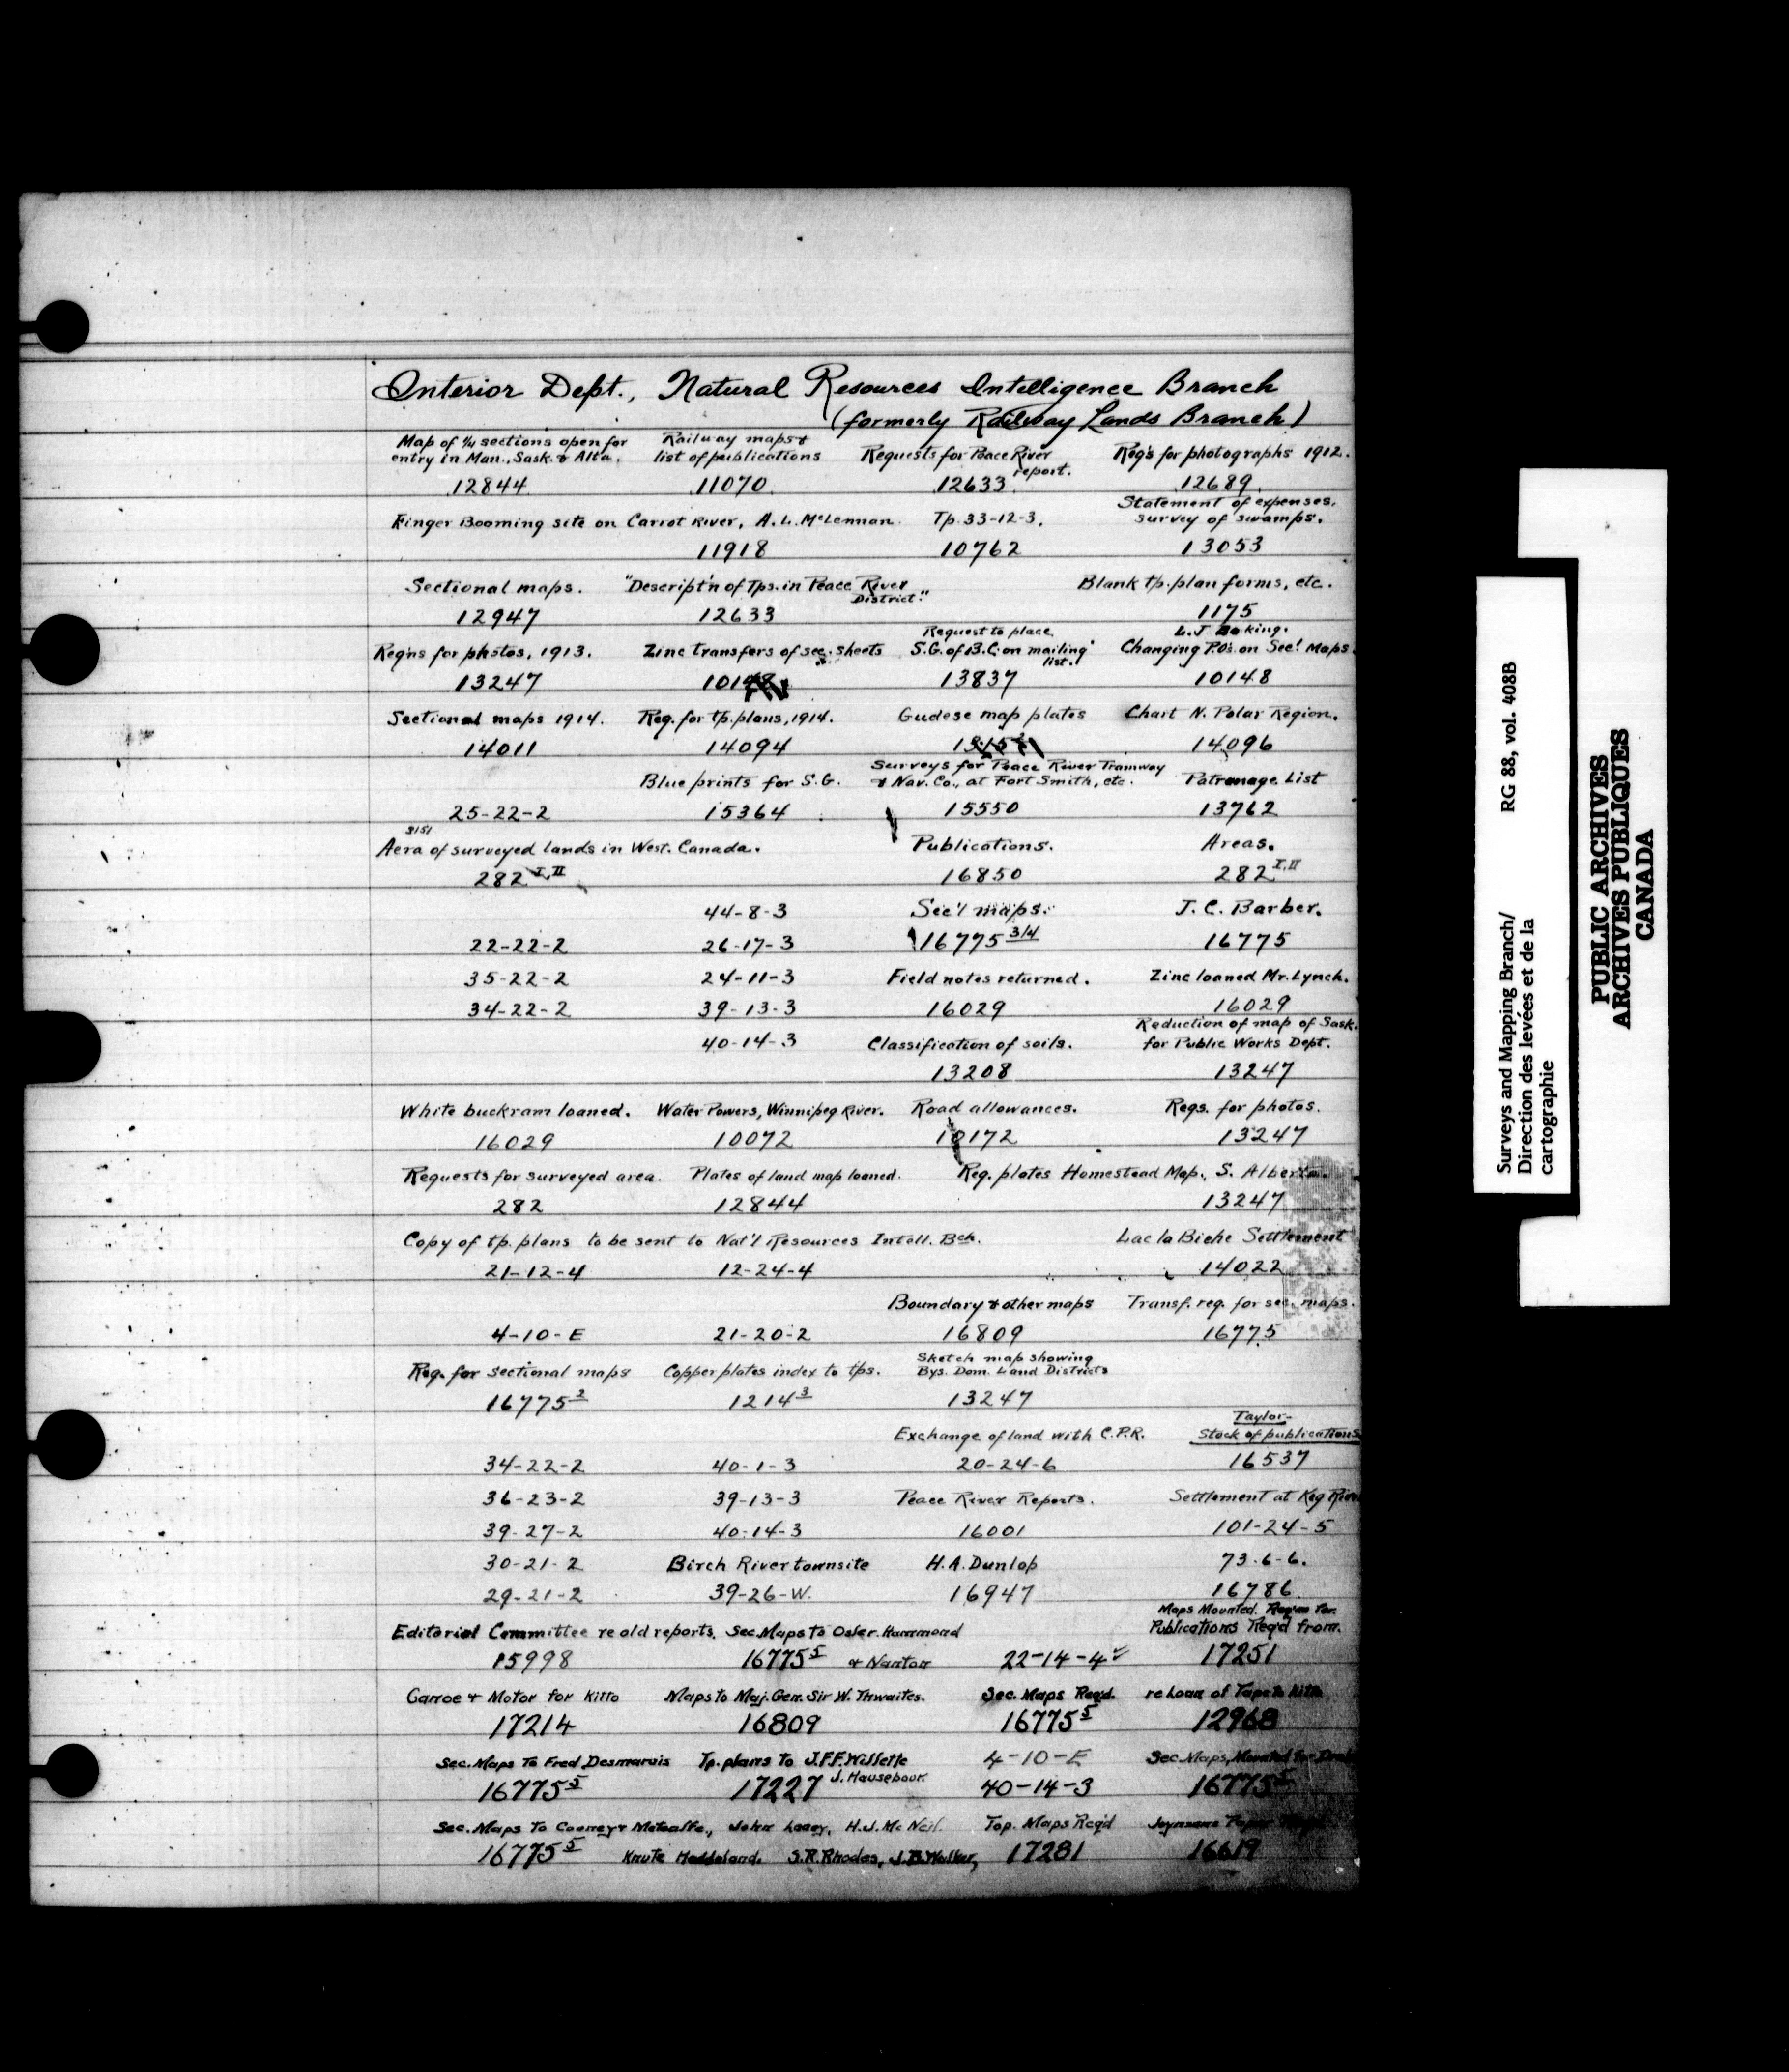 Interior Dept., Natural Resources Intelligence Branch
(formerly Railway Lands Branch)
Map of ¼ sections open for Railway maps &
entry in Man., Sask. & Alta. list of publications Requests for Peace River Reqs for photographs 1912.
report.
12844 11070 12633 12689
Statement of expenses,
Finger Booming site on Carrot River, A. L. McLennan. Tp. 33-12-3. survey of swamps.
11918 10762 13053
Sectional maps. "Descript'n of Tps. in Peace River Blank tp. plan forms, etc.
District."
12947 12633 1175
Request to place L.J. king.
Reqns for photos, 1913. Zinc transfers of sec. sheets S.G. of B.C. on mailing Changing P.O's. on Sec'l Maps.
list.
13247 13837 10148
Sectional maps 1914. Req. for tp. plans, 1914. Gudese map plates Chart N. Polar Region.
14011 14094 14096
Surveys for Peace River Tramway
Blue prints for S.G. & Nav. Co., at Fort Smith, etc. Patronage List
25-22-2 15364 15550 13762
3151
Aera of surveyed lands in West. Canada. Publications. Areas.
282 I, II 16850 282 I, II
44-8-3 Sec'l maps. J. C. Barber.
22-22-2 26-17-3 16775 3/4 16775
35-22-2 24-11-3 Field notes returned. Zinc loaned Mr. Lynch.
34-22-2 39-13-3 16029 16029
Reduction of map of Sask.
40-14-3 Classification of soils. for Public Works Dept.
13208 13247
White buckram loaned. Water Powers, Winnipeg River. Road allowances. Reqs. for photos.
16029 10072 10172 13247
Requests for surveyed area. Plates of land map loaned. Req. plates Homestead Map., S. Alberta.
282 12844 13247
Copy of tp. plans to be sent to Nat'l Resources Intell. Bch. Lac la Biche Settlement
21-12-4 12-24-4 14022
Boundary & other maps Transf. req. for sec. maps.
4-10-E 21-20-2 16809 16775
Sketch map showing
Req. for sectional maps Copper plates index to tps. Bys. Dom. Land Districts
16775 2 1214 3 13247
Taylor-
Exchange of land with C.P.R. Stock of publications
34-22-2 40-1-3 20-24-6 16537
36-23-2 39-13-3 Peace River Reports. Settlement at Keg River
39-27-2 40-14-3 16001 101-24-5
30-21-2 Birch River townsite H. A. Dunlop 73-6-6.
29-21-2 39-26-W. 16947 16786
Maps Mounted.
Editorial Committee re old reports. Sec. Maps to Osler. Hammond Publications Req'd from.
15998 16775 5 & Nanton 22-14-4 17251
Canoe & Motor for Kitto Maps to Maj. Gen. Sir W. Thwaites. Sec. Maps Req'd. re Loan of Tape to Kitto
17214 16809 16775 5 12968
Sec. Maps To Fred Desmarais Tp. plans To J.F.F. Willette 4-10-E Sec. Maps, Mounted for
16775 5 17227 J. Hausebour. 40-14-3 16775
Sec. Maps To Cooney & Metcalfe., John H.J. Mc Neil. Top. Maps Req'd
16775 5 Knute S.R. Rhodes, J.B. Walker, 17281 16619
Surveys and Mapping Branch/ RG 88, vol. 408B
Direction des levées et de la
cartographie
PUBLIC ARCHIVES
ARCHIVES PUBLIQUES
CANADA